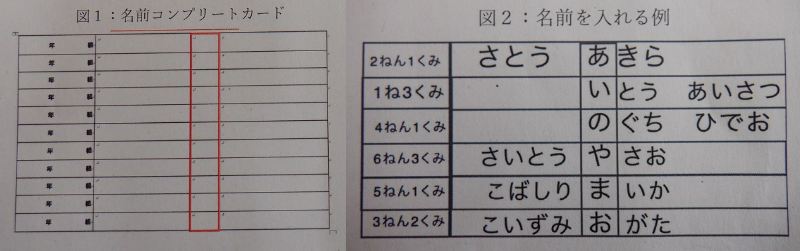 図１：名前コンプリートカード
年 組
年 組
年 組
年 組
年 組
年 組
年 組
年 組
年 組
年 組
年 組
図２：名前を入れる例
2ねん1くみ さとう あ きら
1ね3くみ い とう あいさつ
4ねん1くみ の ぐち ひでお
6ねん3くみ さいとう や さお
5ねん1くみ こばしり ま いか
3ねん2くみ こいずみ お がた